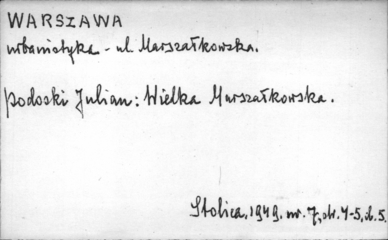 WARSZAWA
urbanistyka - ul. Marszałkowska.
Podoski Julian: Wielka Marszałkowska.
Stolica, 1949. nr. 7, str. 4-5, il. 5.